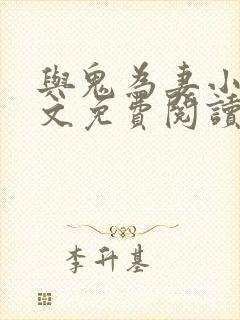 與鬼為妻小
文免費閱讀
李升基